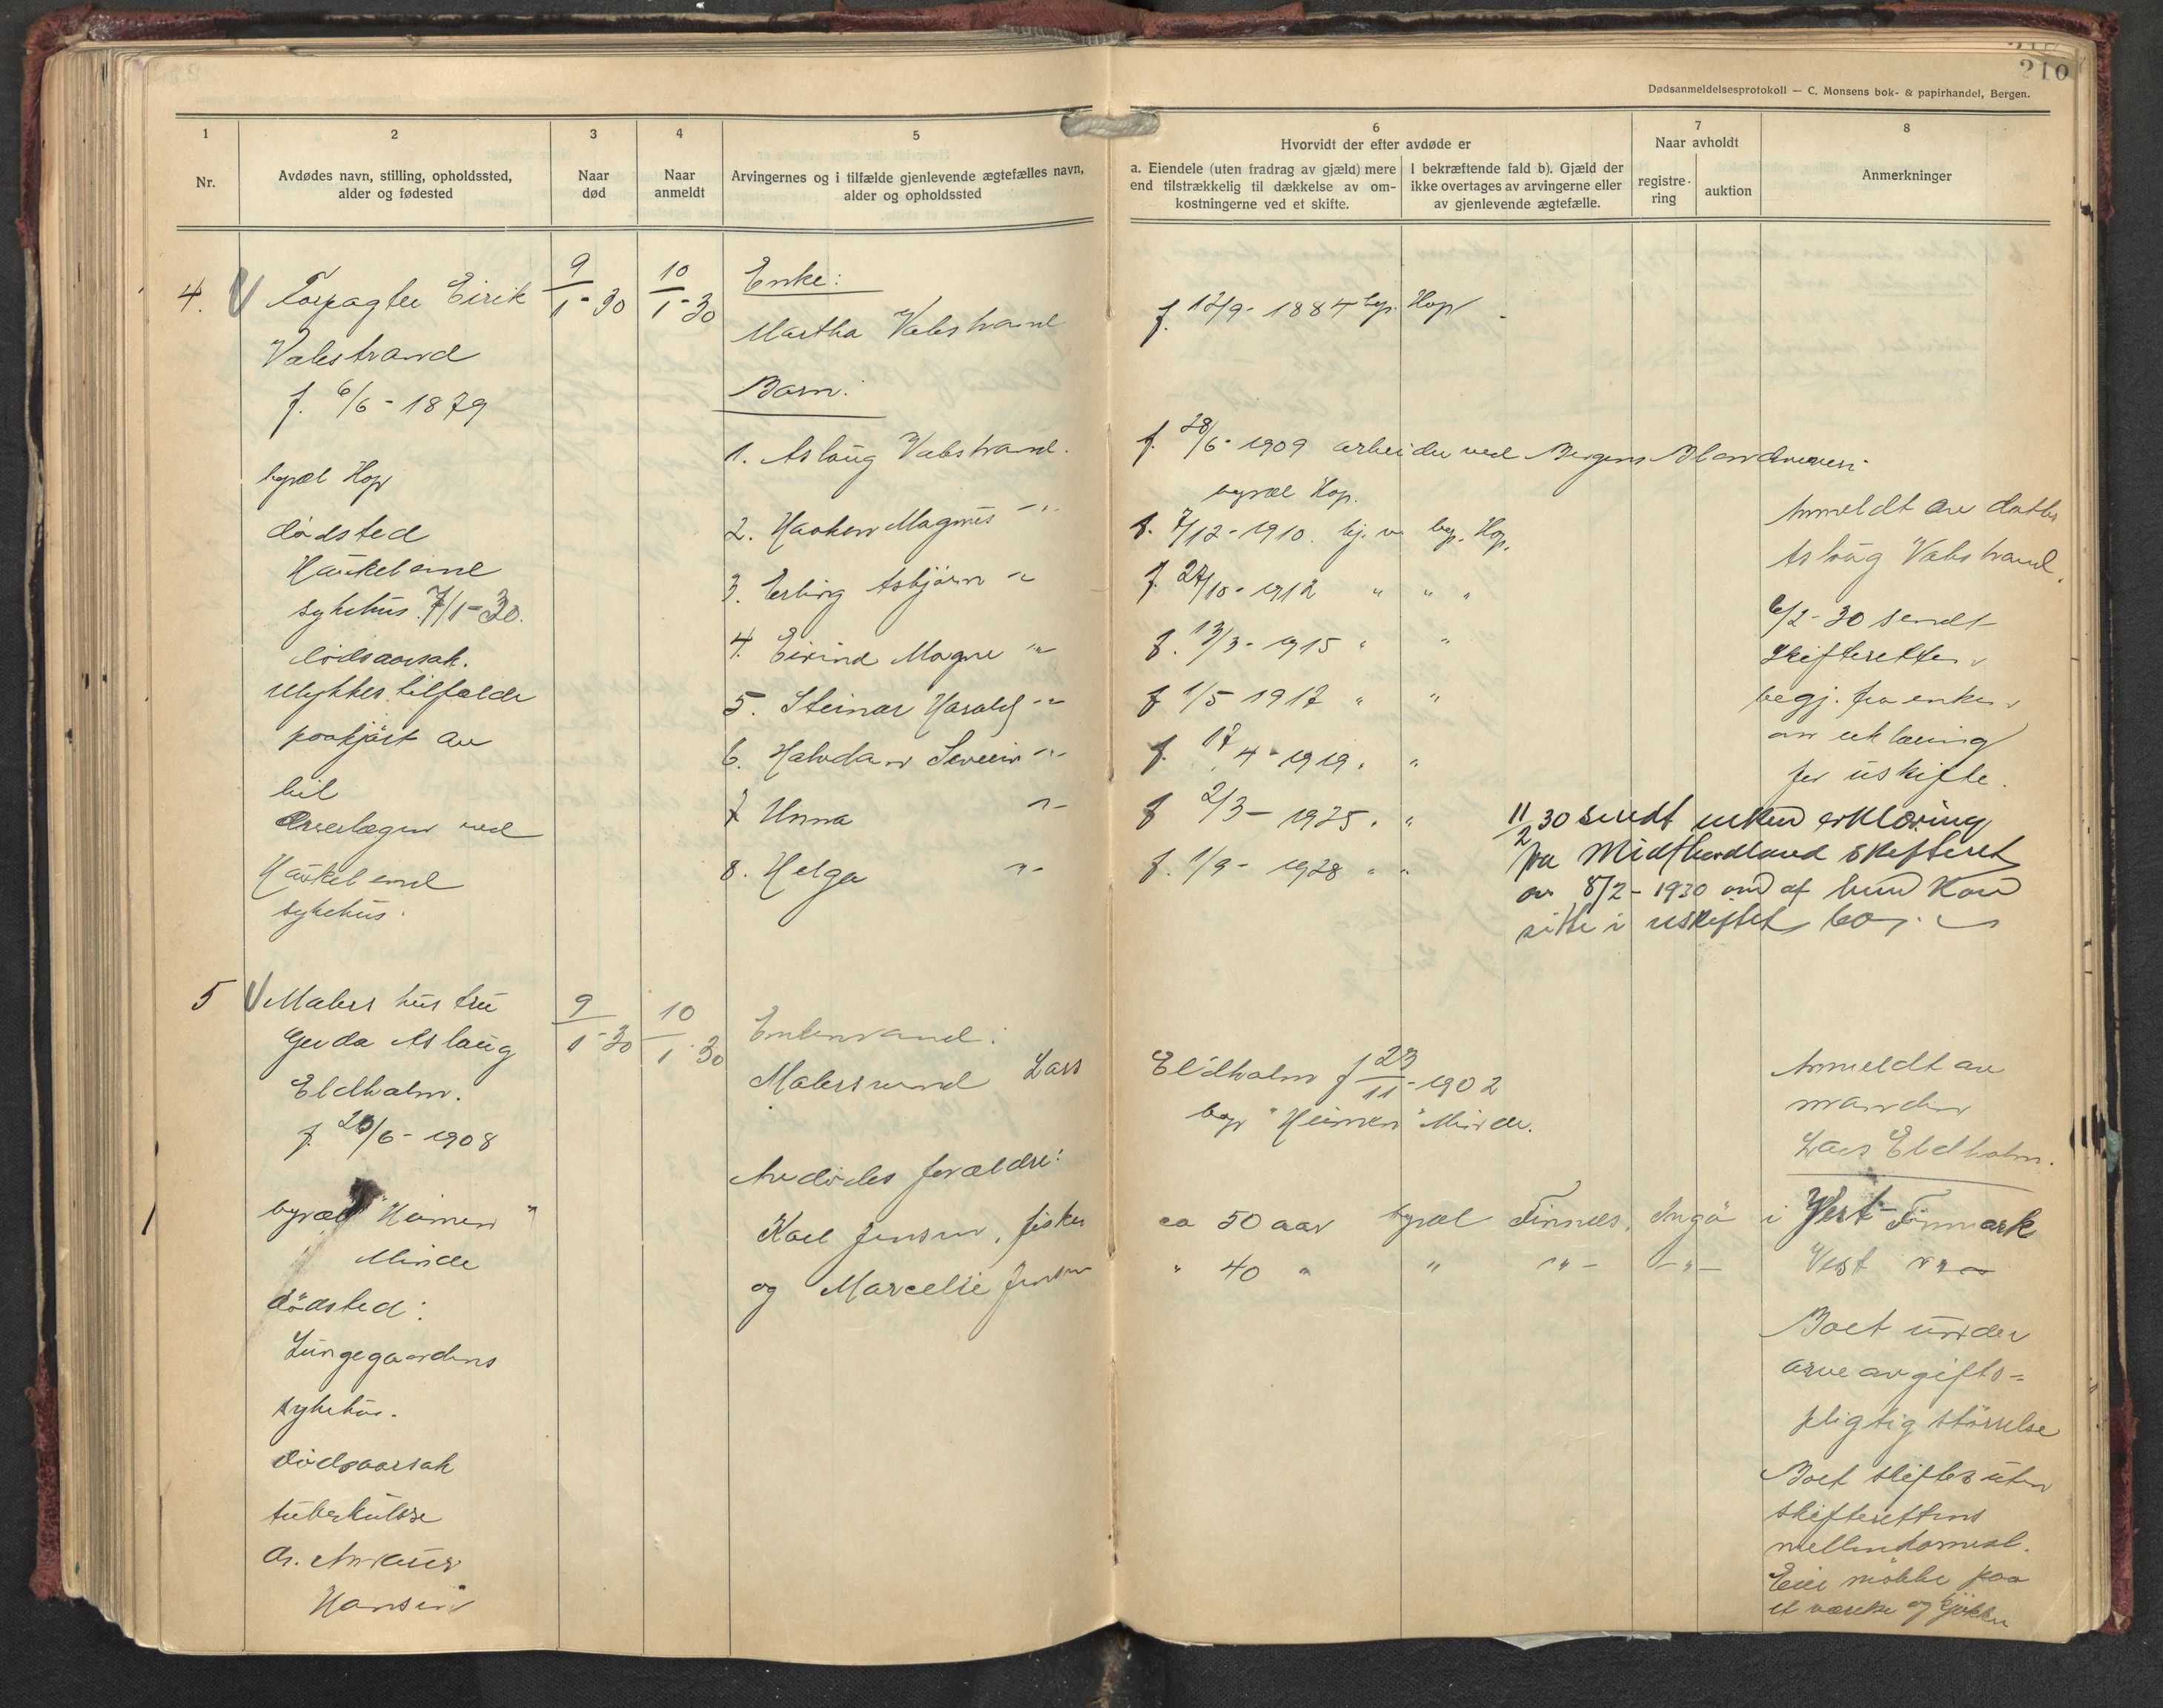 210
Dødsanmeldelsesprotokoll — C. Monsens bok- & papirhandel, Bergen.
1
2
3
4
5
6
7
8
Nr.
Avdødes navn, stilling, opholdssted,
alder og fødested
Naar
død
Naar
anmeldt
Arvingernes og i tilfælde gjenlevende ægtefælles navn,
alder og opholdssted
Hvorvidt der efter avdøde er
a. Eiendele (uten fradrag av gjæld) mere
end tilstrækkelig til dækkelse av om-
kostningerne ved et skifte.
I bekræftende fald b). Gjæld der
ikke overtages av arvingerne eller
av gjenlevende ægtefælle.
Naar avholdt
registre-
ring
auktion
Anmerkninger
4.
Forpagter Eirik
Valestrand
f. 6/6 - 1879
bopæl Hop
dødsted
Haukeland
sykehus 7/1-30.
Dødsaarsak.
ulykkestilfælde
paakjørt av
bil
Overlægen ved
Haukeland
sykehus.
9/1-30
10/1-30
Enke:
Martha Valestrand
f. 12/9-1884 bop. Hop
Barn:
1. Aslaug Valestrand.
f. 28/6-1909 arbeider ved Bergens
bopæl Hop.
2. Haakon Magnus -"-
f. 7/12-1910. hj. v. bop. Hop.
3. Erling Asbjørn -"-
f. 27/10-1912 " " "
4. Eivind Magne -"-
f. 13/3-1915 " "
5. Steinar Harald -"-
f 1/5 1917 " "
6. Halvdan Severin -"-
f. 17/4-1919. "
7 Unna -"-
f 2/3-1925. "
8. Helga -"-
f. 1/9-1928 " "
Anmeldt av datter
Aslaug Valestrand.
6/2-30 sendt
Skifteretten
begj. fra enken
om utlevering
for uskifte.
11/2 30 sendt enken erklæring
fra Midthordland skifteret
av 8/2-1930 om at hun kan
sitte i uskiftet bo.
5
Malers hustru
Gerda Aslaug
Eldholm.
f. 20/6-1908
bopæl "Heimen"
Minde
dødsted:
Lungegaardens
sykehus.
Dødsaarsak
tuberkulose
dr.
Hansen
9/1-30
10/1-30
Enkemand:
Malersvend Lars
Eldholm f 23/11-1902
bop "Heimen" Minde.
Avdødes forældre:
Karl Jensen, fisker
ca 50 aar bopæl Finnes, Ingø i Vest-Finmark
og Marcelie Jensen
" 40 " " -"- -"- Vest -"-
Anmeldt av
manden
Lars Eldholm.
Boet under
arveavgifts-
pligtig størrelse
Boet skiftes uten
skifterettens
mellemkomst.
Eier møbler paa
et værelse og kjøkken